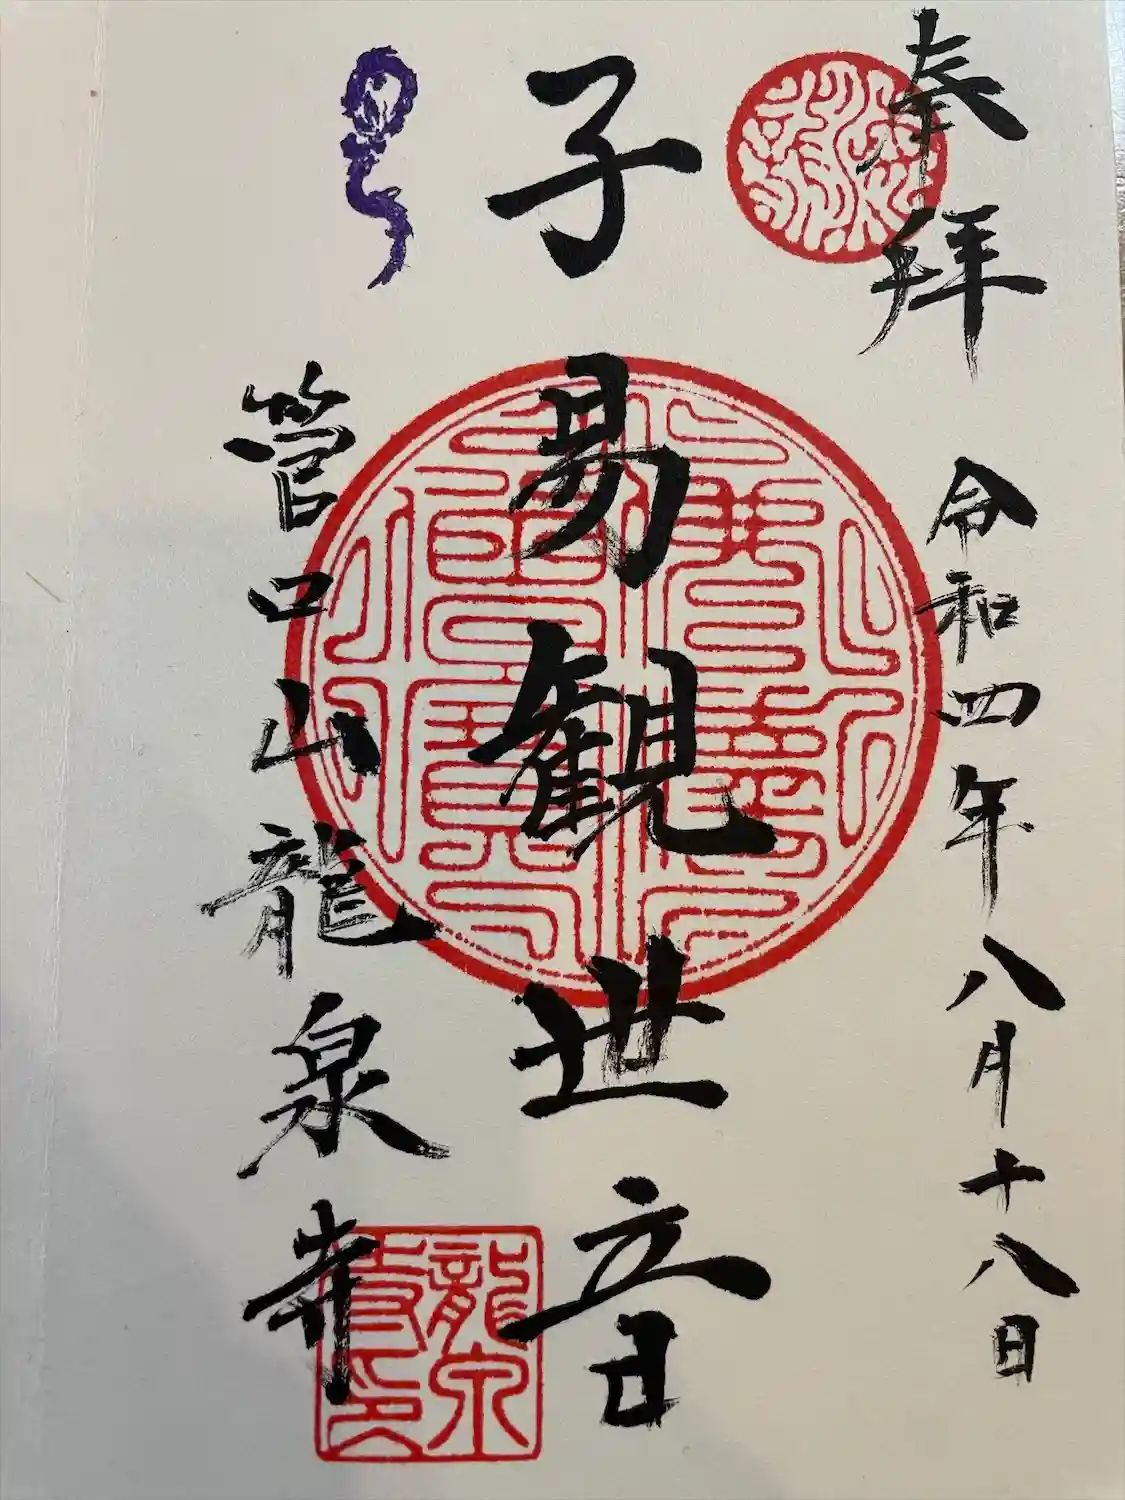 奉拝
令和四年八月十八日
子易観世音
管口山龍泉寺
龍泉寺印